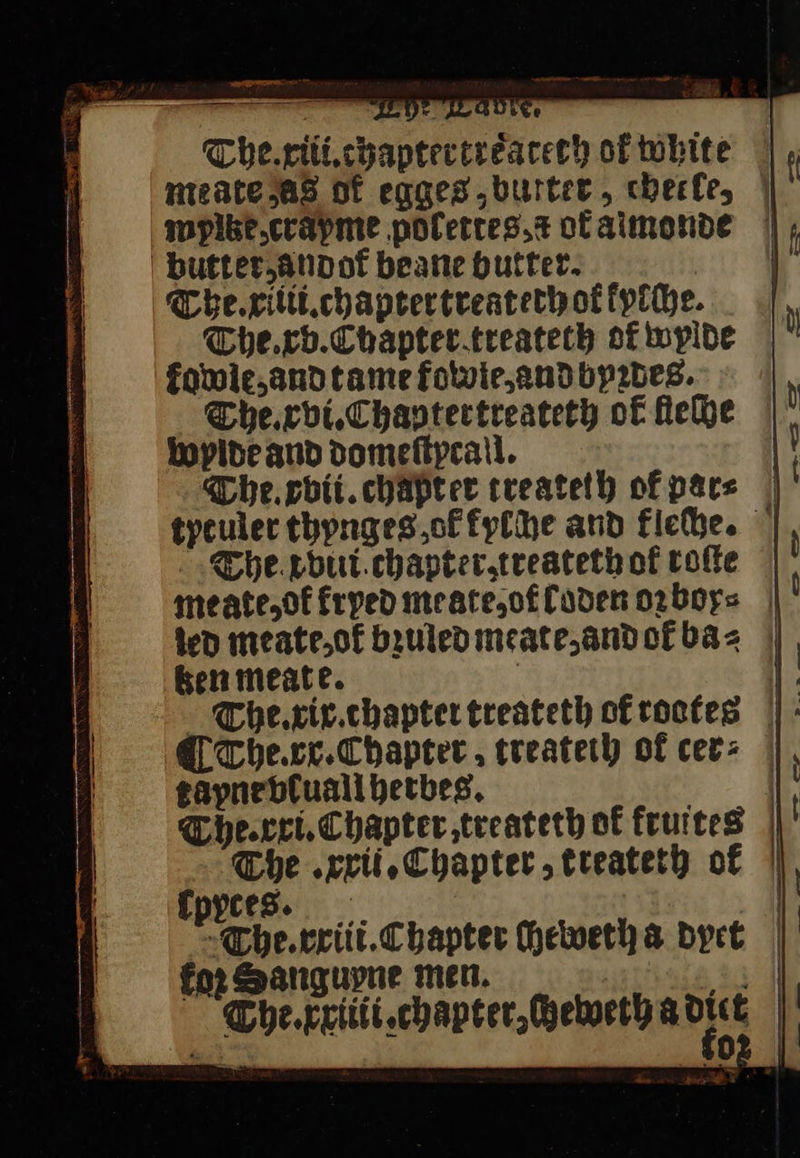 The Table.
The.xiii.chaptertreateth of white
meate,as of egges,butter, cheese,
mylke,crayme possettes,⁊ of almonde
butter,and of beane butter.
The.xiiii.chaptertreateth of fysshe.
The.xv.Chapter.treateth of wylde
fowle,and tame fowle,and byrdes.
The.xvi.Chaptertreateth of fleshe
wylde and domestycall.
The.xvii.chapter treateth of par⸗
tyculer thynges,of fysshe and fleshe.
The.xviii.chapter,treateth of roste
meate,of fryed meate,of soden or boy⸗
led meate,of bruled meate,and of ba⸗
ken meate.
The.xix.chapter treateth of rootes
¶The.xx.Chapter, treateth of cer⸗
tayne vsuall herbes.
The.xxi.Chapter,treateth of fruites
The .xxii.Chapter, treateth of
spyces.
The.xxiii.Chapter sheweth a dyet
for Sanguyne men.
The.xxiiii.chapter,sheweth a diet
for